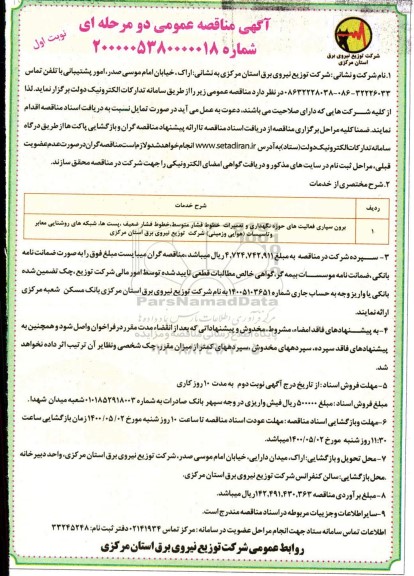 آگهی مناقصه عمومی دو مرحله ای
شماره ۲۰۰۰۰۰۵۳۸۰۰۰۰۰۱۸
نوبت اول
شرکت توزیع نیروی برق
استان مرکزی
۱- نام شرکت و نشانی: شرکت توزیع نیروی برق استان مرکزی به نشانی: اراک، خیابان امام موسی صدر، امور پشتیبانی با تلفن تماس
۳۲۲۴۶۰۳۳-۰۸۶ و ۰۸۶۳۲۲۲۸۰۳۸ در نظر دارد مناقصه عمومی زیر را از طریق سامانه تدارکات الکترونیک دولت برگزار نماید. لذا
از کلیه شرکت هایی که دارای صلاحیت می باشند، دعوت به عمل می آید در صورت تمایل نسبت به دریافت اسناد مناقصه اقدام
نمایند. ضمنا کلیه مراحل برگزاری مناقصه از دریافت اسناد مناقصه تا ارائه پیشنهاد مناقصه گران و بازگشایی پاکت ها از طریق درگاه
سامانه تدارکات الکترونیک دولت (ستاد) به آدرس www.setadiran.ir انجام خواهد شد و لازم است مناقصه گران در صورت عدم عضویت
قبلی، مراحل ثبت نام در سایت های مذکور و دریافت گواهی امضای الکترونیکی را جهت شرکت در مناقصه محقق سازند.
۲- شرح مختصری از خدمات
ردیف شرح خدمات
۱ برون سپاری فعالیت های حوزه نگهداری و تعمیرات خطوط فشار متوسط، خطوط فشار ضعیف ،پست ها، شبکه های روشنایی معابر
وتاسیسات (هوایی وزمینی) شرکت توزیع نیروی برق استان مرکزی
۳- سپرده شرکت در مناقصه به مبلغ ۴,۷۲۴,۷۴۲,۹۱۱ ریال میباشد. مناقصه گران میبایست مبلغ فوق را به صورت ضمانت نامه
بانکی، ضمانت نامه موسسات بیمه گر، گواهی خالص مطالبات قطعی تایید شده توسط امور مالی شرکت توزیع، چک تضمین شده
بانکی یا واریز وجه به حساب جاری شماره ۱۴۰۰۵۱۰۳۶۵۱ به نام شرکت توزیع نیروی برق استان مرکزی بانک مسکن شعبه مرکزی
ارائه نمایند.
۴- به پیشنهادهای فاقد امضاء، مشروط، مخدوش و پیشنهاداتی که بعد از انقضاء مدت مقرر در فراخوان واصل شود و همچنین به
پیشنهادهای فاقد سپرده، سپرده‌های مخدوش، سپرده‌های کمتر از میزان مقرر، چک شخصی ونظایر آن ترتیب اثر داده نخواهد
شد.
۵- مهلت فروش اسناد :از تاریخ درج آگهی نوبت دوم به مدت ۱۰ روز کاری
مبلغ فروش اسناد: مبلغ ۵۰۰۰۰۰ ریال فیش واریزی در وجه سپهر بانک صادرات به شماره ۰۱۰۱۸۵۲۹۱۸۰۰۳ شعبه میدان شهدا.
۶- مهلت و بازگشایی اسناد مناقصه : مهلت عودت اسناد مناقصه تا ساعت ۱۰ روز شنبه مورخ ۱۴۰۰/۰۵/۰۲ زمان بازگشایی ساعت
۱۱:۳۰ روز شنبه مورخ ۱۴۰۰/۰۵/۰۲ میباشد.
۷- محل تحویل و بازگشایی: اراک، میدان دارایی، خیابان امام موسی صدر، شرکت توزیع نیروی برق استان مرکزی، واحد دبیرخانه
.محل بازگشایی: سالن کنفرانس شرکت توزیع نیروی برق استان مرکزی.
۸- مبلغ برآوردی مناقصه ۱۴۲,۴۹۱,۴۳۰,۳۶۳ ریال میباشد.
۹- سایر اطلاعات و جزییات مربوطه در اسناد مناقصه مندرج است.
اطلاعات تماس سامانه ستاد جهت انجام مراحل عضویت در سامانه : مرکز تماس ۰۲۱۴۱۹۳۴ دفتر ثبت نام: ۳۳۲۴۵۲۴۸
روابط عمومی شرکت توزیع نیروی برق استان مرکزی
ParsNamadData